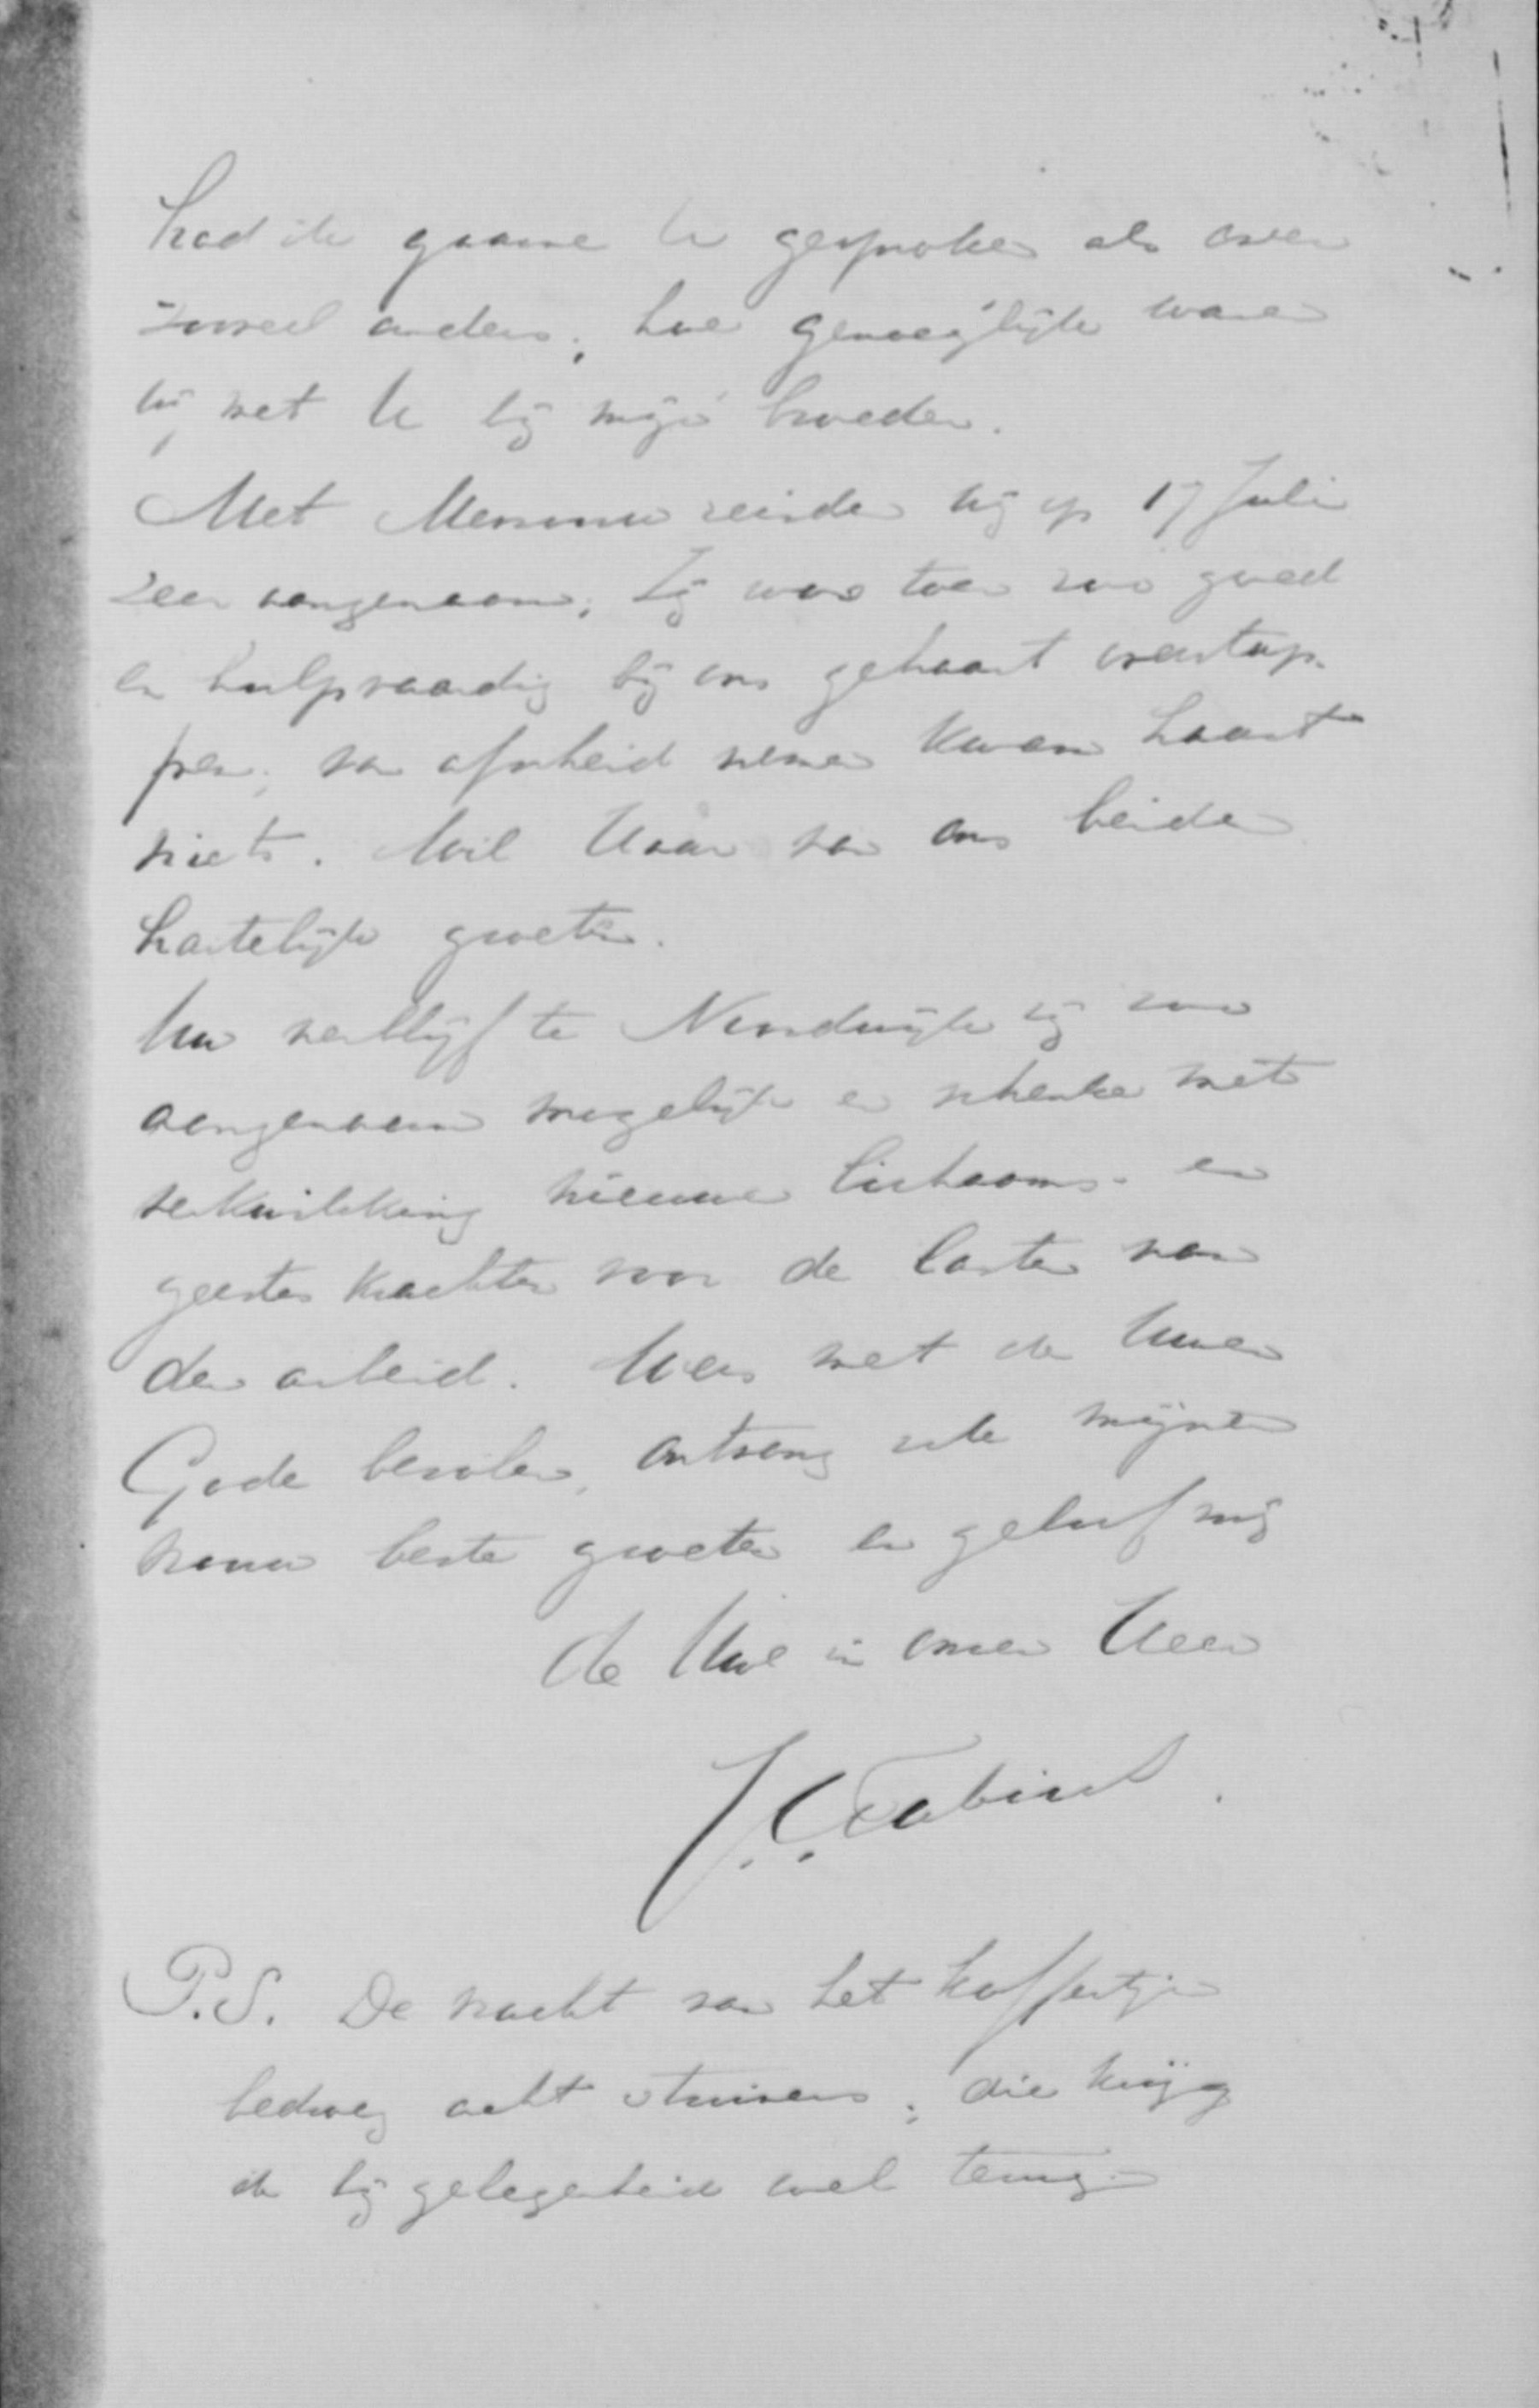 had ik gaarne U gesproken als over
zooveel anders; hoe genoegelijk waren
wij met U bij mijn broeder.
Met Mevrouw reisden wij op 17 Juli
zeer aangenaam; Zij was toen zoo goed
en hulpvaardig bij ons gehaast overstap-
pen; van afscheid nemen kwam haast
niets. Wil Haar van ons beiden
hartelijk groeten.
Uw verblijf te Noordwijk zij zoo
aangenaam mogelijk en schenke met
verkwikking nieuwe lichaams- en
geestes krachten voor de lasten van
den arbeid. Wees met de Uwen
Gode bevolen, ontvang ook mijner
vrouw beste groeten en geloof mij
de Uwe in onzen Heer
J.C. Fabius.
P.S. De vracht van het koffertje
bedroeg acht stuivers; die krijg
ik bij gelegenheid wel terug.